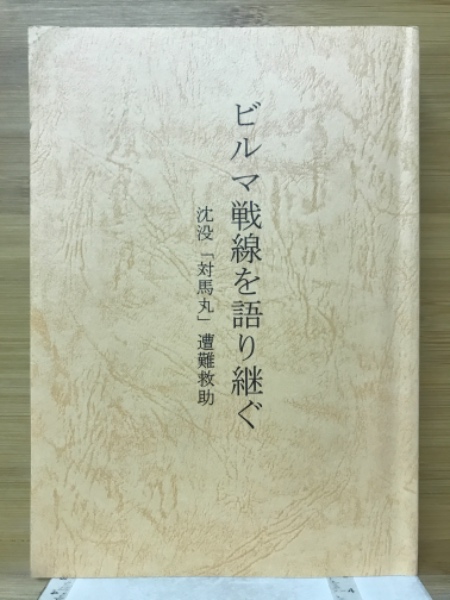 ビルマ戦線を語り継ぐ
沈没「対馬丸」遭難救助